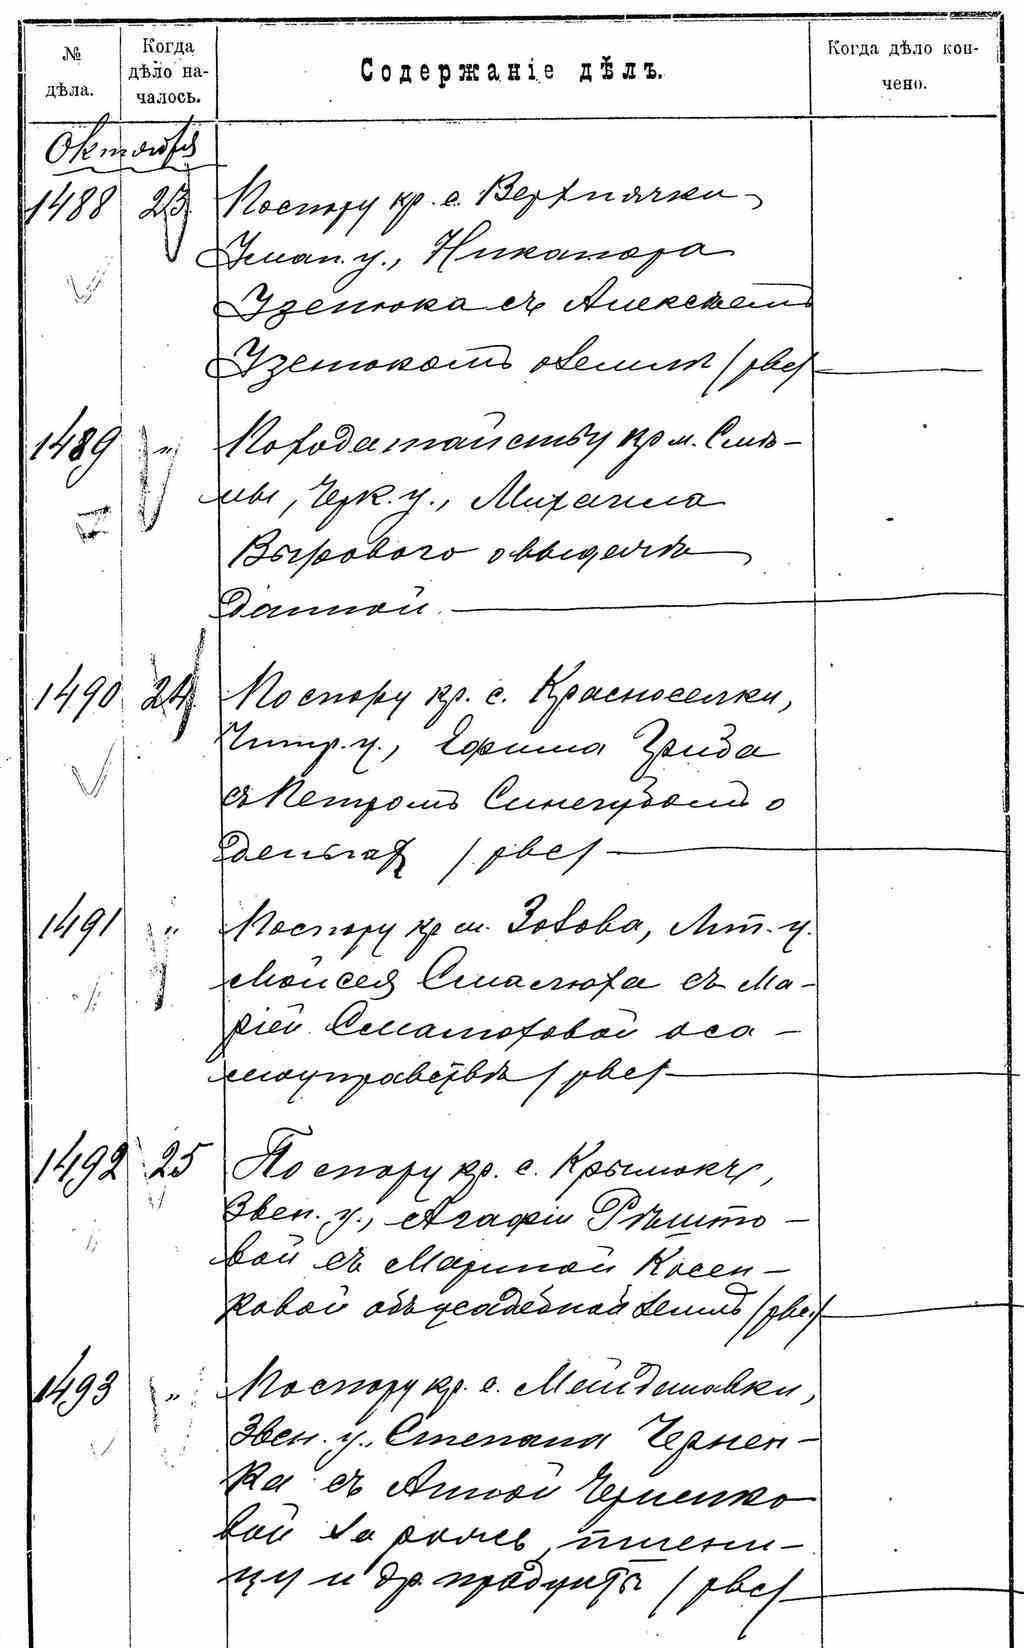 № дѣла.
Когда дѣло на-чалось.
Содержаніе дѣлъ.
Когда дѣло кон-чено.
Октября
1488 23. По спору кр. с. Верхнячки,
Уман. у., Никанора
Узенюка съ Алексѣемъ
Узенюкомъ о землѣ /рвс/
1489 " По ходатайству кр. м. Смѣ-
лы, Черк. у., Михаила
Вырового о выдачѣ
данной.
1490 24. По спору кр. с. Красноселки,
Чигир. у., Ефима Гриба
съ Петромъ Синегубомъ о
деньгах /рвс/
1491 " По спору кр. м. Зозова, Лип. у.
Мойсея Смалюха съ Ма-
ріей Смалюховой о са-
моуправствѣ /рвс/
1492 25 По спору кр. с. Крымокъ,
Звен. у., Агафіи Рѣшто-
вой съ Мариной Косен-
ковой объ усадебной землѣ /рвс/
1493 " По спору кр. с. Майдановки,
Звен. у., Степана Чернен-
ка съ Анной Черненко-
вой за рожь, пшени-
цу и др. продукты /рвс/